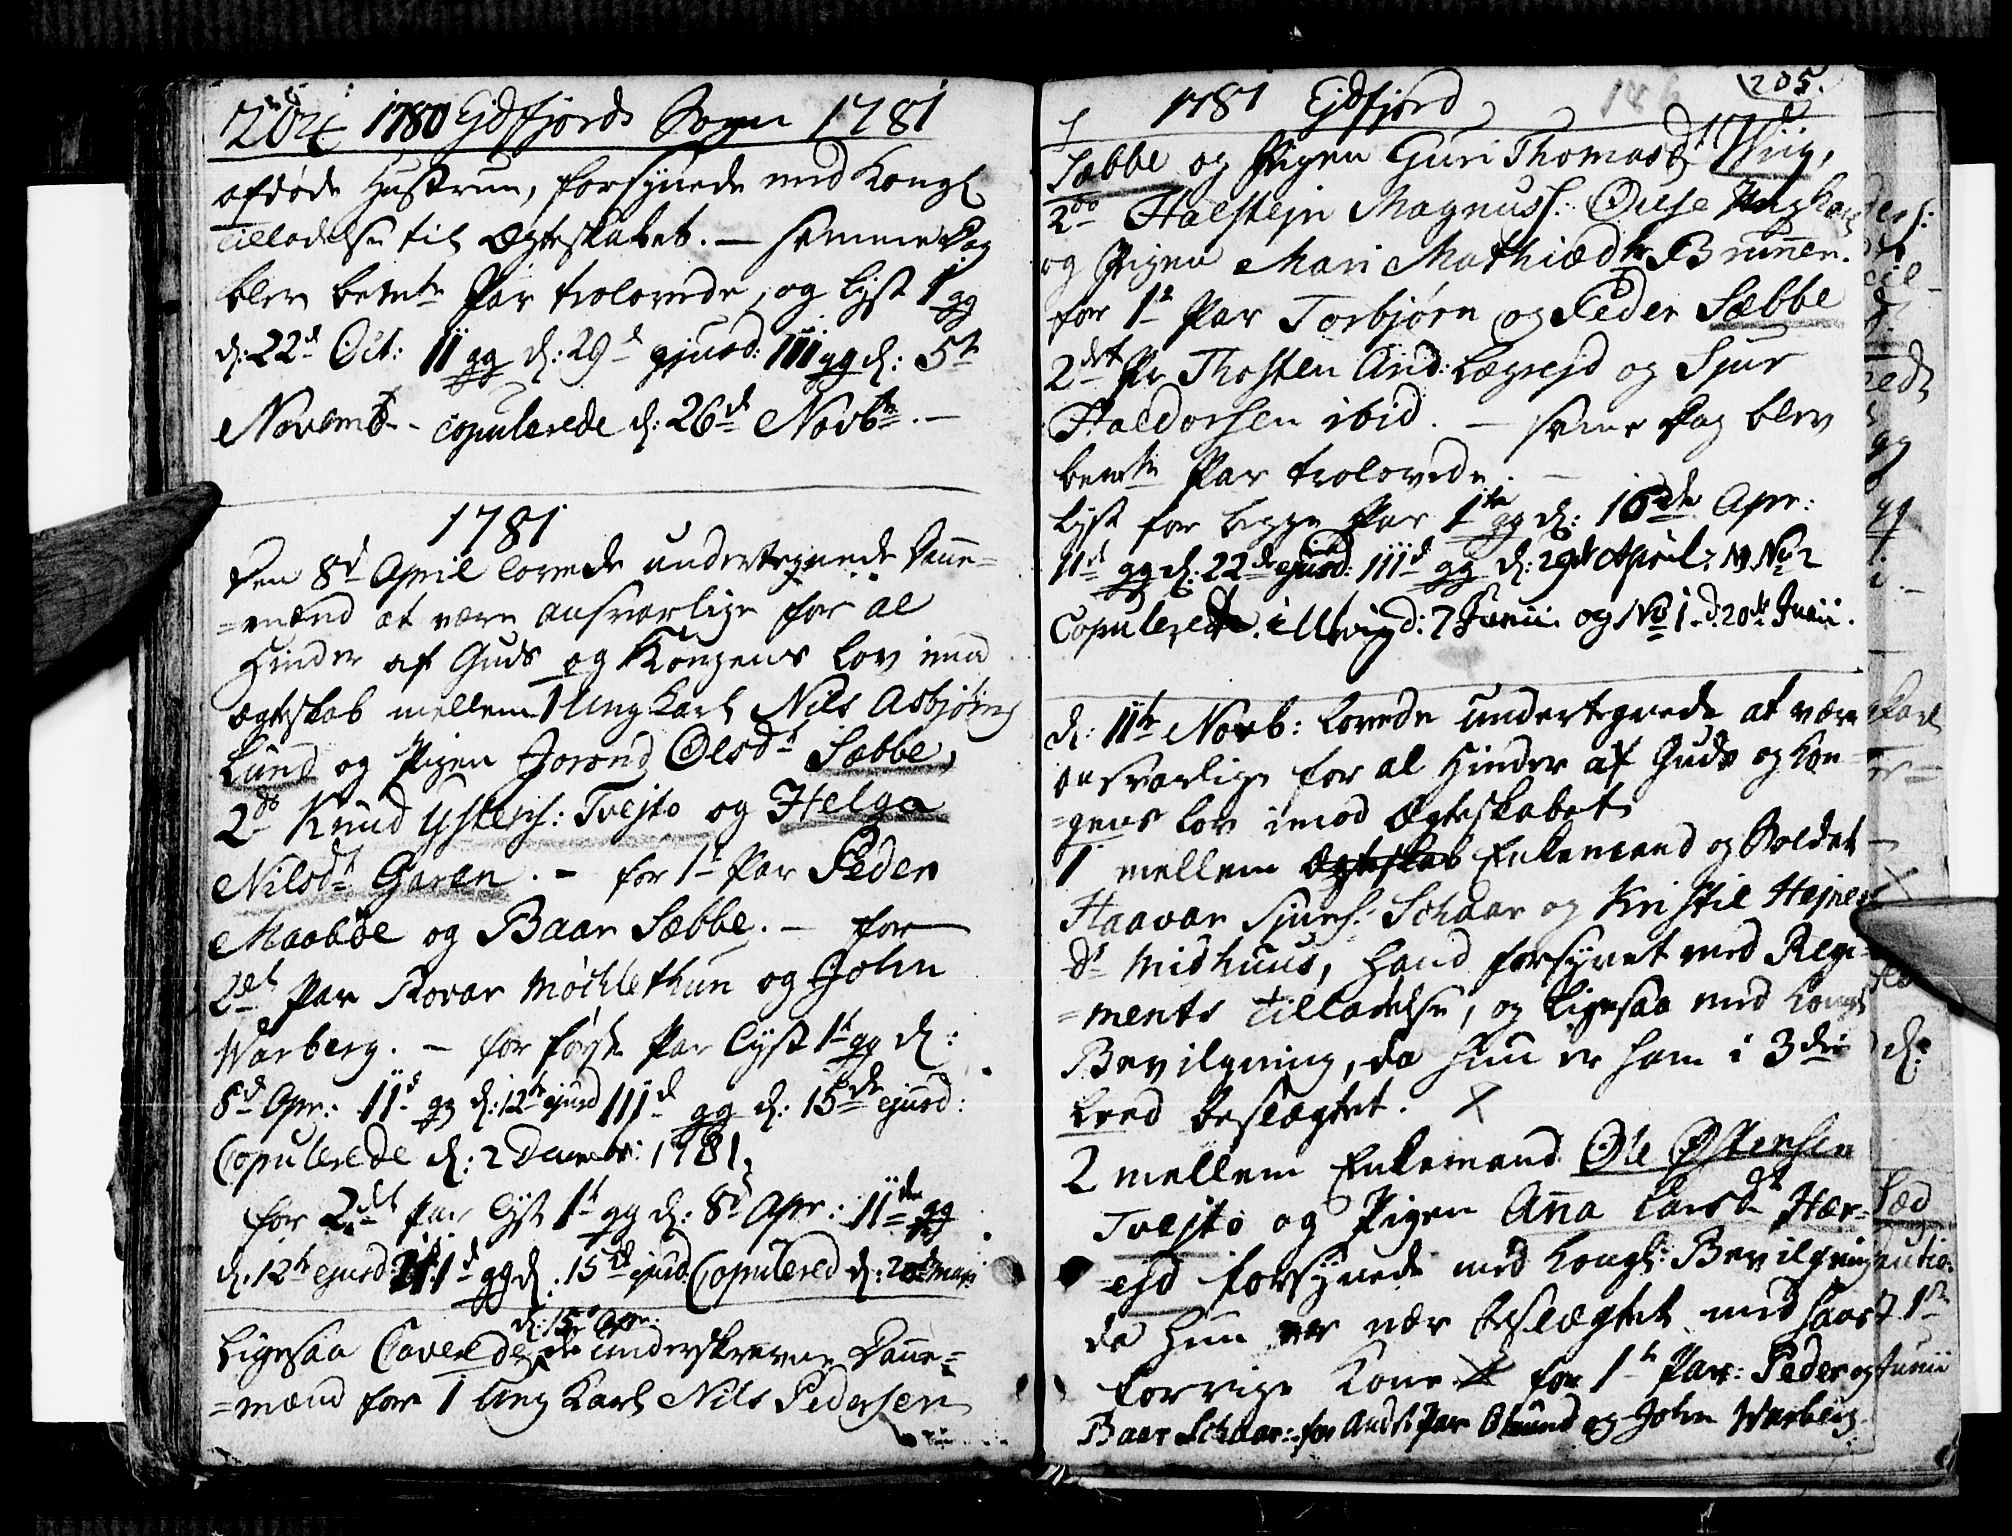 204 1780 Ejdfjords Sogn 1781
afdøde Hustrue, forsynede med Kongl
Tilladelse til Ægteskabet. — samme Dag
blev bemte Par trolovede, og lyst 1 gg
d: 22d Oct: II gg d: 29d ejusd: III gg d: 5te
Novemb - copulerede d: 26d Novbr. —
1781
Den 8d April lovede undertegnede Danne=
=mænd at være ansvarlige for al
Hinder af Guds og Kongens Lov imod
ægteskab mellem 1 Ung Karl Nils Asbjørns
Lund og Pigen Jorond Olsdt Sæbbe,
2do Knud Østens: Tvejto og Helga
Nilsdt Garen. — for 1te Par Peder
Maabøe og Baar Sæbbe. — for
2det Par Roar Møchlethun og John
Warberg. — for første Par lyst 1te gg d:
8d Apr: IId gg d: 12te ejusd IIId gg d: 15de ejusd:
Copulerede d: 2 Decembr: 1781.
for 2det Par lyst 1te gg d: 8d Apr: IIde gg
d: 12te ejusd: IIId gg d: 15de ejusd Copulered d: 20de Maji
d: 15d Apr:
Ligesaa Caverede de underskrevne Danne=
=mænd for 1 Ung Karl Nils Pedersen
1781 Ejdfjord 205.
Sæbbe og Pigen Guri Thomasdt Wiig,
2do Halstejn Magnuss: Ouse Ungkarl
og Pigen Mari Mathiædtr Brunnen.
for 1te Par Torbjørn og Peder Sæbbe
2det Pr Thosten And: Lægrejd og Sjur
Haldorsen ibid. — samme Dag blev
bemte Par trolovede. —
lyst for begge Par 1te gg d: 16de Apr:
IId gg d: 22de ejusd: IIId gg d: 29de April: No 2
Copulerede i Ulvig d: 7 Junii og No 1 d: 20de Junii.
d: 11te Novb: lovede undertegnede at være
ansvarlige for al Hinder af Guds og Kon=
=gens Lov imod Ægteskabet
1 mellem Ægteskab Enkemand og Soldat
Haavar Sjurs: Schaar og Kristil Hejne
dt Midhuus, hand forsynet med Regi=
=ments Tilladelse, og ligesaa med Kongl
Bevilgning, da hun er ham i 3die
Leed beslægtet. X
2 mellem Enkemand Ole Østensen
Tvejto og Pigen Anna Larsdt Hær=
=ejd forsynede med Kongl: Bevilgning
da hun var nær beslægtet med hans
forrige Kone for 1te Par: Peder og
Baar Schaar: for Andet Par Omund og John Warberg.